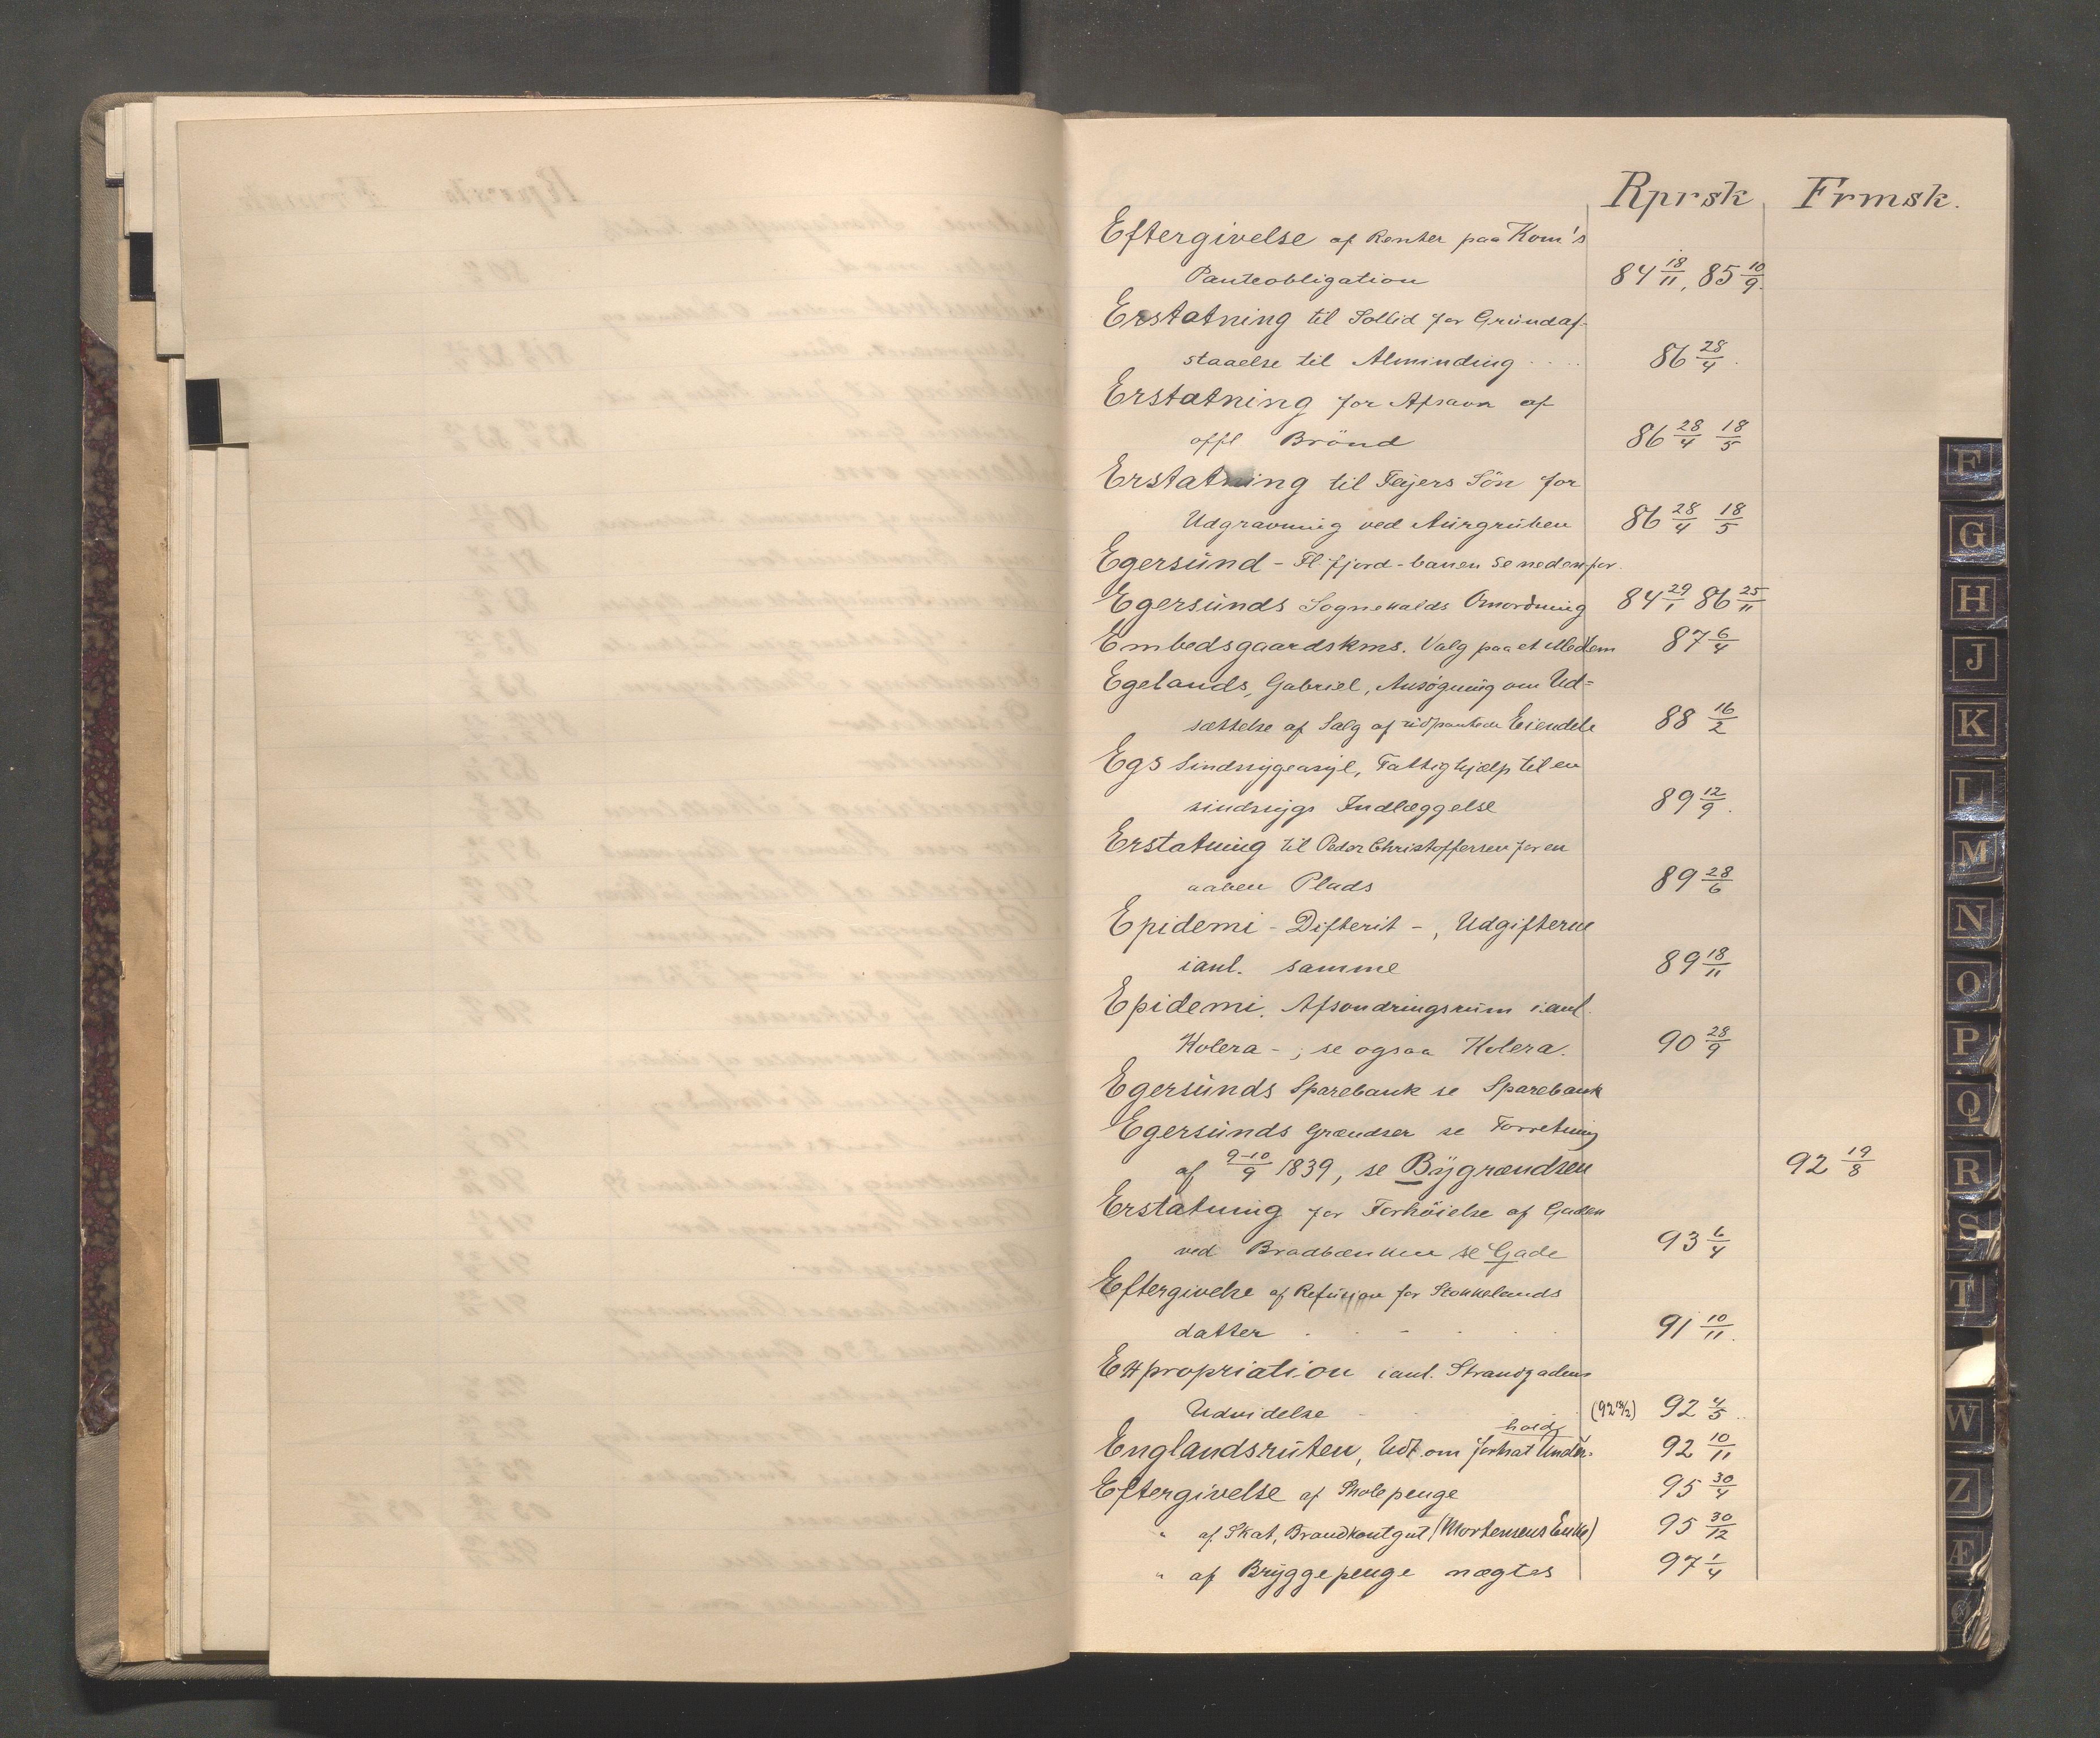 Rprsk Frmsk.
Eftergivelse af Renter paa Kom's
Panteobligation 84 18/11, 85 10/9.
Erstatning til Sollid for Grundaf-
staaelse til Alminding 86 28/4.
Erstatning for Afsavn af
offl Brönd 86 28/4 18/5
Erstatning til Fejers Sön for
Udgravning ved 86 28/4 18/5
Egersund - Fl.fjord-banen se nedenfor.
Egersunds Sognekalds Omordning 84 29/1 86 25/11
Embedsgaardskms. Valg paa et Medlem 87 6/4
Egelands, Gabriel, Ansøgning om Ud=
sættelse af Salg af udpantede Eiendele 88 16/2
Egs Sindssygeasyl, Fattighjælp til en
sindssygs Indlæggelse 89 12/9.
Erstatning til Peder Christoffersen for en
aaben Plads 89 28/6
Epidemi - Difterit -, Udgifterne
ianl. samme 89 18/11
Epidemi. Afsondringsrum ianl.
Kolera -; se ogsaa Kolera. 90 28/9
Egersunds Sparebank se Sparebank
Egersunds Grændser se Forretning
af 9-10/9 1839, se Bygrændsen 92 19/8
Erstatning for Forhöielse af Gaden
ved Bradbænken se Gade 93 6/4
Eftergivelse af Refusion for Stokkelands
datter 91 10/11.
Expropriation ianl. Strandgadens
Udvidelse (92 18/2) 92 4/5
hold
Englandsruten, Udt om fortsat Under- 92 10/11
Eftergivelse af Skolepenge 95 30/4
" af Skat, Brandkontgut (Mortensens Enke) 95 30/12
" af Bryggepenge nægtes 97 1/4
F
G
H
J
K
L
M
N
O
P
Q
R
S
T
W
Z
Æ
Ø